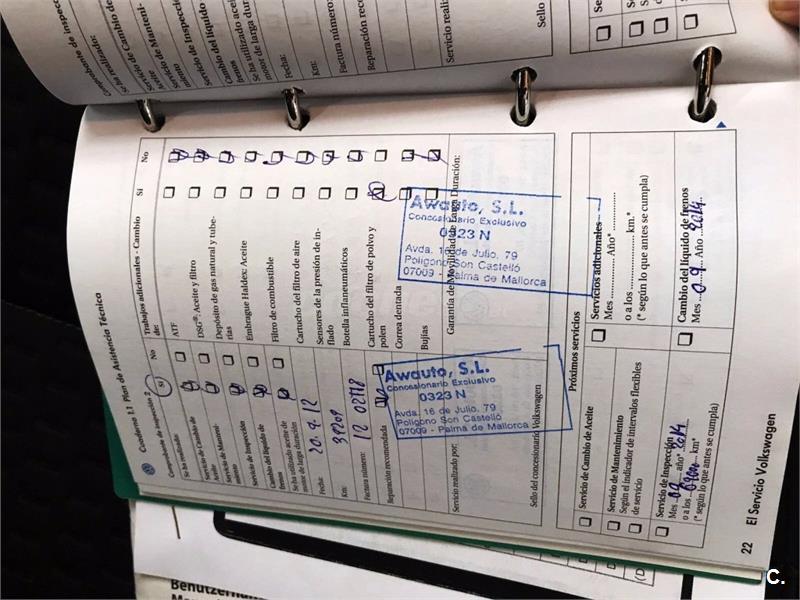 Cuaderno 1.1 Plan de Asistencia Técnica
Comprobante de inspección 2
Sí No
Se ha realizado:
Servicio de Cambio de
Aceite
Servicio de Manteni-
miento
Servicio de Inspección
Cambio del líquido de
frenos
Se ha utilizado aceite de
motor de larga duración
Fecha: 20.9.12
Km: 38209
Factura número: 12 02718
Reparación recomendada
Servicio realizado por:
Awauto, S.L.
Concesionario Exclusivo
0323 N
Avda. 16 de Julio, 79
Polígono Son Castelló
07009 - Palma de Mallorca
Sello del concesionario Volkswagen
Trabajos adicionales - Cambio
de:
Sí No
ATF
DSG®: Aceite y filtro
Depósito de gas natural y tube-
rías
Embrague Haldex: Aceite
Filtro de combustible
Cartucho del filtro de aire
Sensores de la presión de in-
flado
Botella inflaneumáticos
Cartucho del filtro de polvo y
polen
Correa dentada
Bujías
Garantía de Movilidad de Larga Duración:
Awauto, S.L.
Concesionario Exclusivo
0323 N
Avda. 16 de Julio, 79
Polígono Son Castelló
07009 - Palma de Mallorca
Próximos servicios
Servicio de Cambio de Aceite
Servicio de Mantenimiento
Según el indicador de intervalos flexibles
de servicio
Servicio de Inspección
Mes 09 año* 2014
o a los km*
(* según lo que antes se cumpla)
Servicios adicionales
Mes Año*
o a los km.*
(* según lo que antes se cumpla)
Cambio del líquido de frenos
Mes 09 Año 2014
22 El Servicio Volkswagen
Comprobante de inspecc
Se ha realizado:
Servicio de Cambio de
Servicio de Manteni-
miento
Servicio de Inspecci
Cambio del líquido
frenos
Se ha utilizado acei
motor de larga dura
Fecha:
Km:
Factura número:
Reparación reco
Servicio realiz
Sello
C.